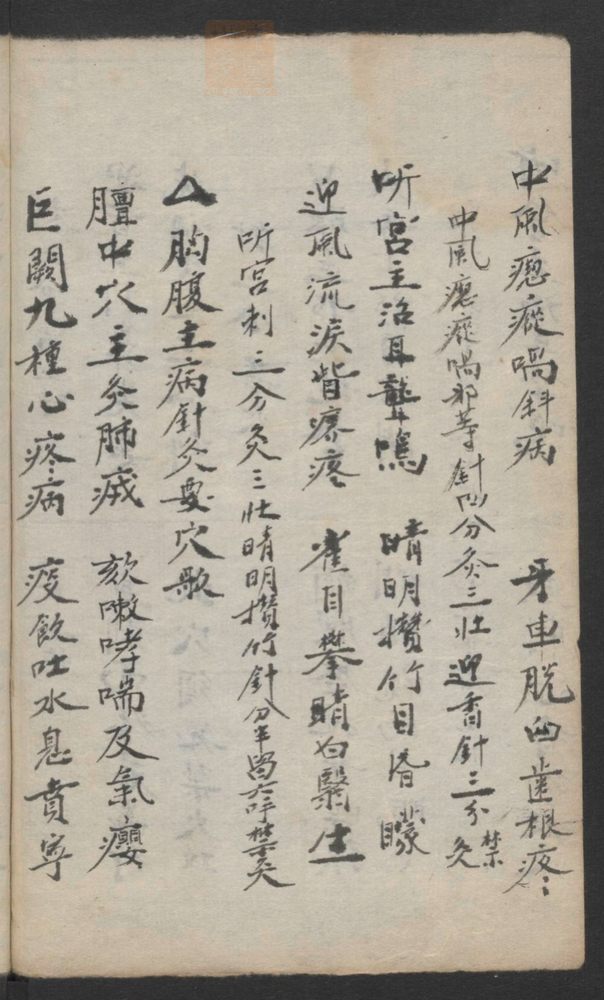 中風㾽瘲喎斜病　牙車脫臼歯根疼
中風㾽瘲喎邪等針四分灸三壯迎香針三分禁灸
听宮主治耳聾鳴　睛明攢竹目昏矇
迎風流淚眥癢疼　雀目攀睛白翳生
听宮刺三分灸三壯睛明攢竹針分半留六呼禁灸
△胸腹主病針灸要穴歌
膻中穴主灸肺 欬嗽哮喘及氣癭
巨闕九種心疼病　痰飲吐水息賁寧